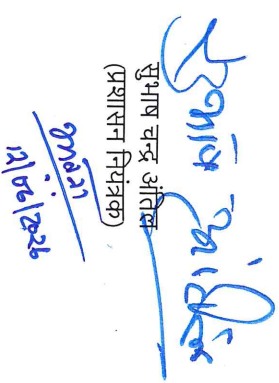 सुभाष चन्द्र अंतिल
सुभाष चन्द्र अंतिल
(प्रशासन नियंत्रक)
12/06/2026